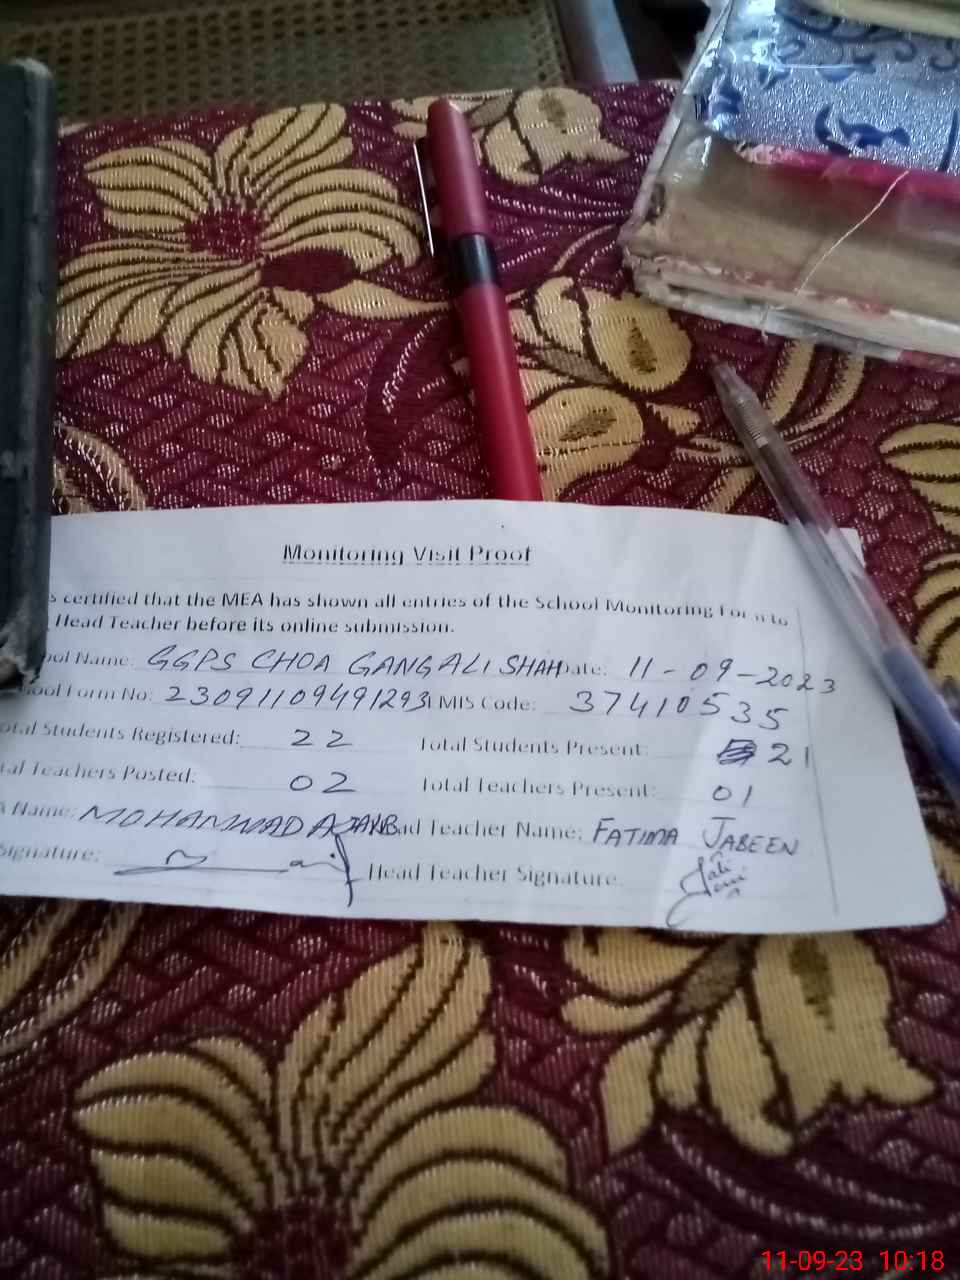 Monitoring Visit Proof
s certified that the MEA has shown all entries of the School Monitoring Form to
Head Teacher before its online submission.
ool Name: GGPS CHOA GANGALI SHAH Date: 11-09-2023
ool Form No: 23091109491293 EMIS Code: 37410535
otal Students Registered: 22 Total Students Present: 21
tal Teachers Posted: 02 Total Teachers Present: 01
Name: MOHAMMAD Head Teacher Name: FATIMA JABEEN
Signature: Head Teacher Signature:
11-09-23 10:18